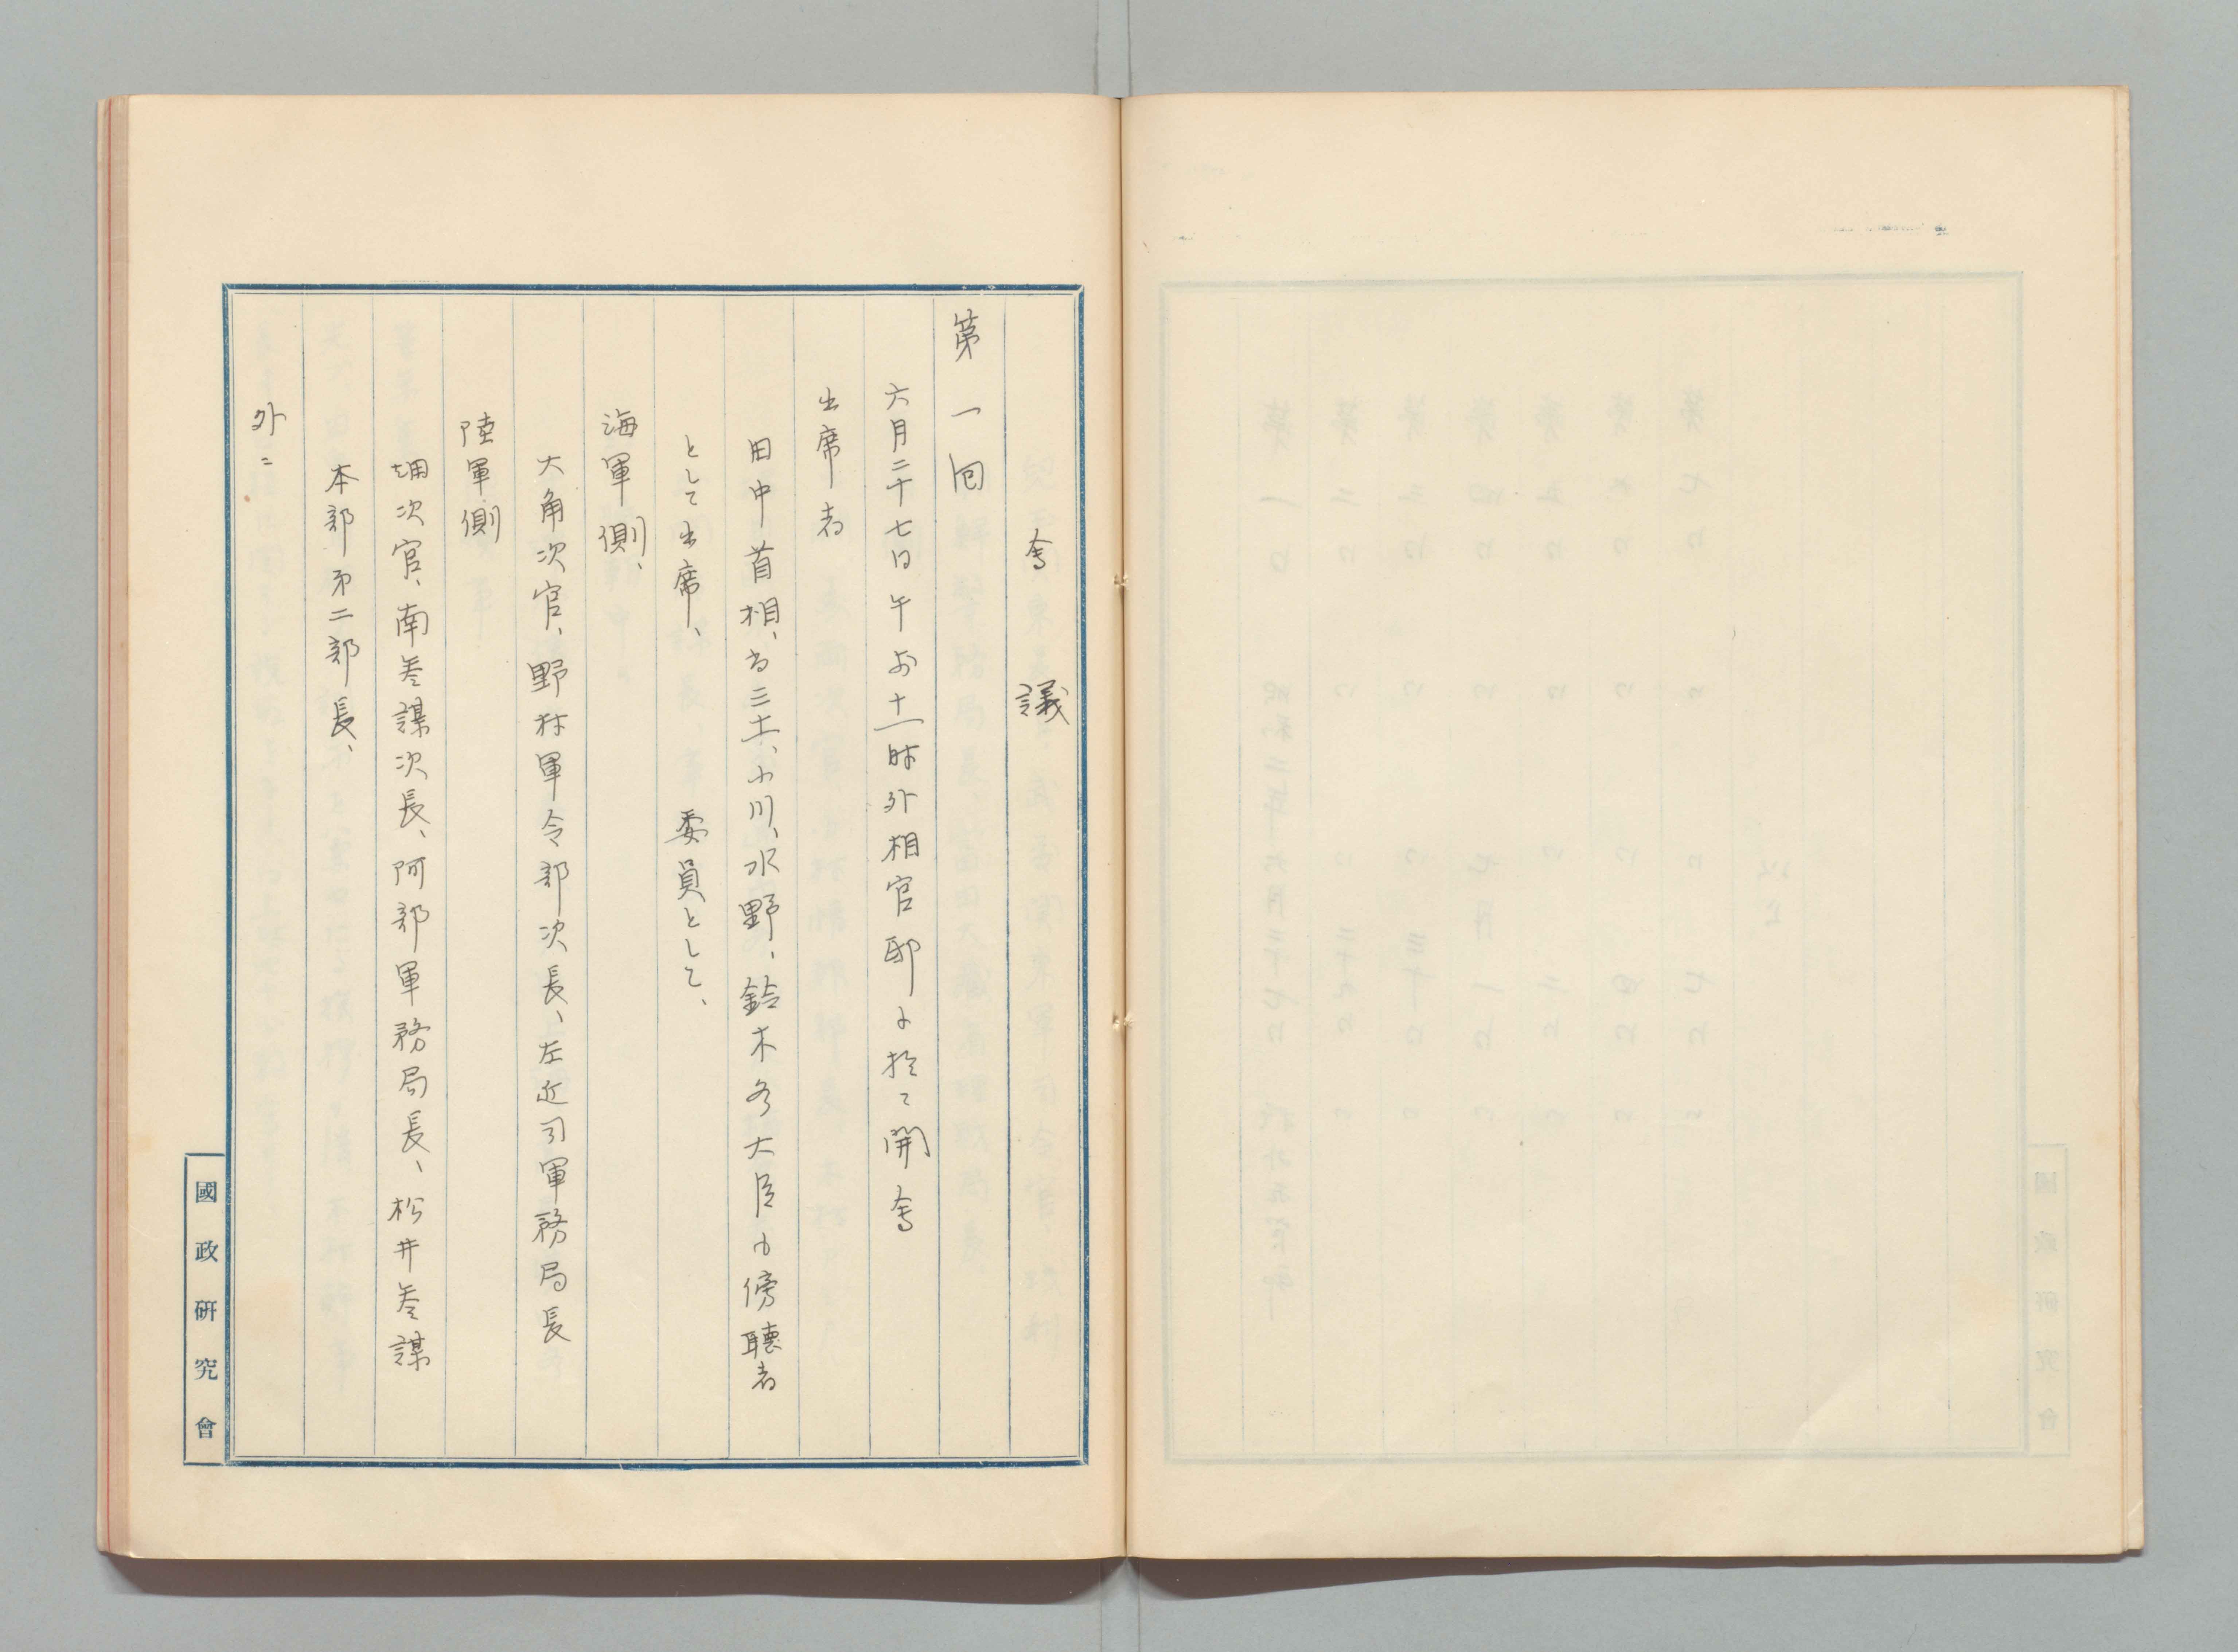 会議
第一回
六月二十七日午前十一時外相官邸に於て開会
出席者
田中首相、為三土、小川、水野、鈴木各大臣も傍聴者
として出席、委員として、
海軍側、
大角次官、野村軍令部次長、左近司軍務局長
陸軍側
畑次官、南参謀次長、阿部軍務局長、松井参謀
本部第二部長、
外ニ
國政研究會